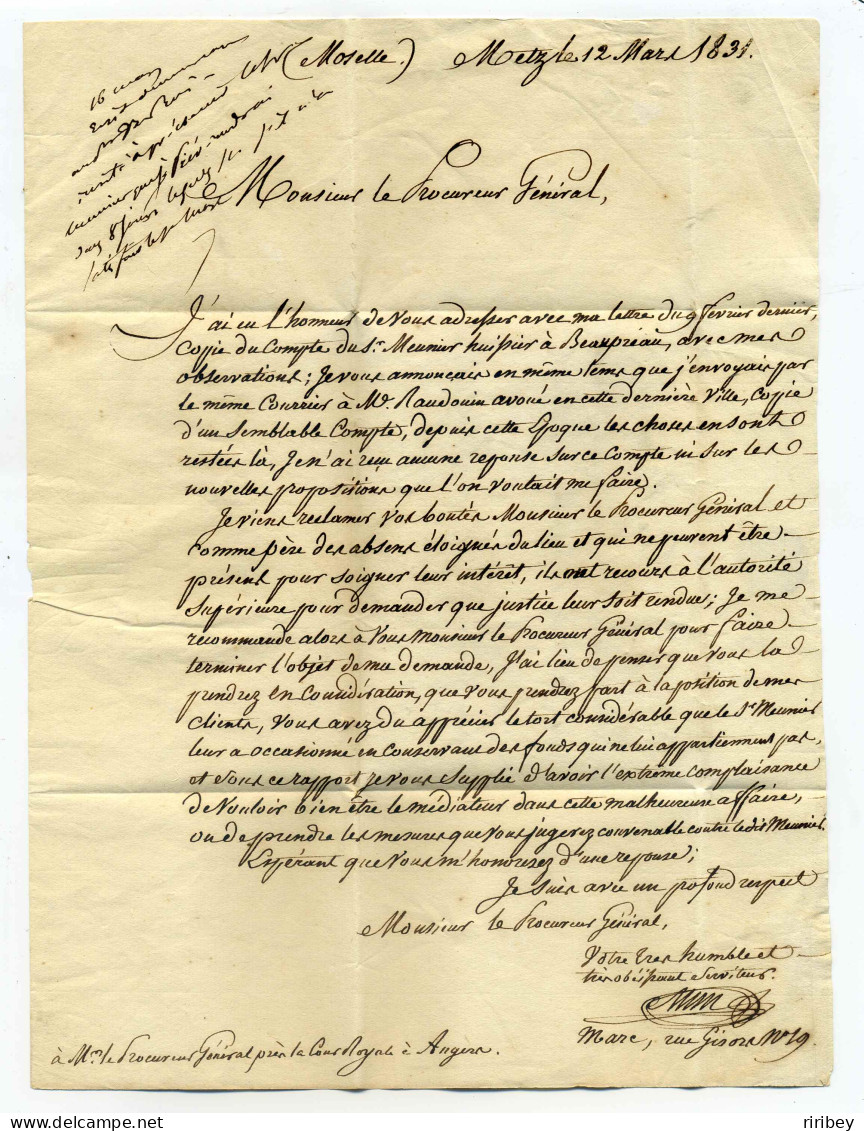 (Moselle.) Metz le 12 Mars 1831.
16 mars
écrit à présent
dans 8 jours
Monsieur le Procureur Général,
J'ai eu l'honneur de Vous adresser avec ma lettre du 9 février dernier,
Copie du Compte du Sr. Meunier huissier à Beaupréau, avec mes
observations; Je vous annonçais en même tems que j'envoyais par
le même Courrier à Mr. Raudouin avoué en cette dernière Ville, Copie
d'un Semblable Compte, depuis cette Epoque les choses en sont
restées là, Je n'ai reçu aucune reponse sur ce Compte ni sur les
nouvelles propositions que l'on voulait me faire.
Je viens reclamer vos boutés Monsieur le Procureur Général et
comme père des absens éloignés du lieu et qui ne peuvent être
présens pour soigner leur intérêt, ils ont recours à l'autorité
Supérieure pour demander que justice leur soit rendue; Je me
recommande alors à Vous Monsieur le Procureur Général pour faire
terminer l'objet de ma demande, J'ai lieu de penser que vous la
prendrez en Considération, que vous prendrez part à la position de mes
Clients, Vous avez du apprécier le tort considérable que le Sr. Meunier
leur a occasionné en Conservant des fonds qui ne lui appartiennent pas,
et Sous ce rapport je vous Supplie d'avoir l'extrême complaisance
de Vouloir bien être le médiateur dans cette malheureuse affaire,
ou de prendre les mesures que Vous jugerez convenable contre le dit Meunier.
Espérant que Vous m'honorerez d'une reponse;
Je suis avec un profond respect
Monsieur le Procureur Général,
Votre tres humble et
très obéissant Serviteur.
Marc, rue Gisors No 19.
à Mr. le Procureur Général près la Cour Royale à Angers.